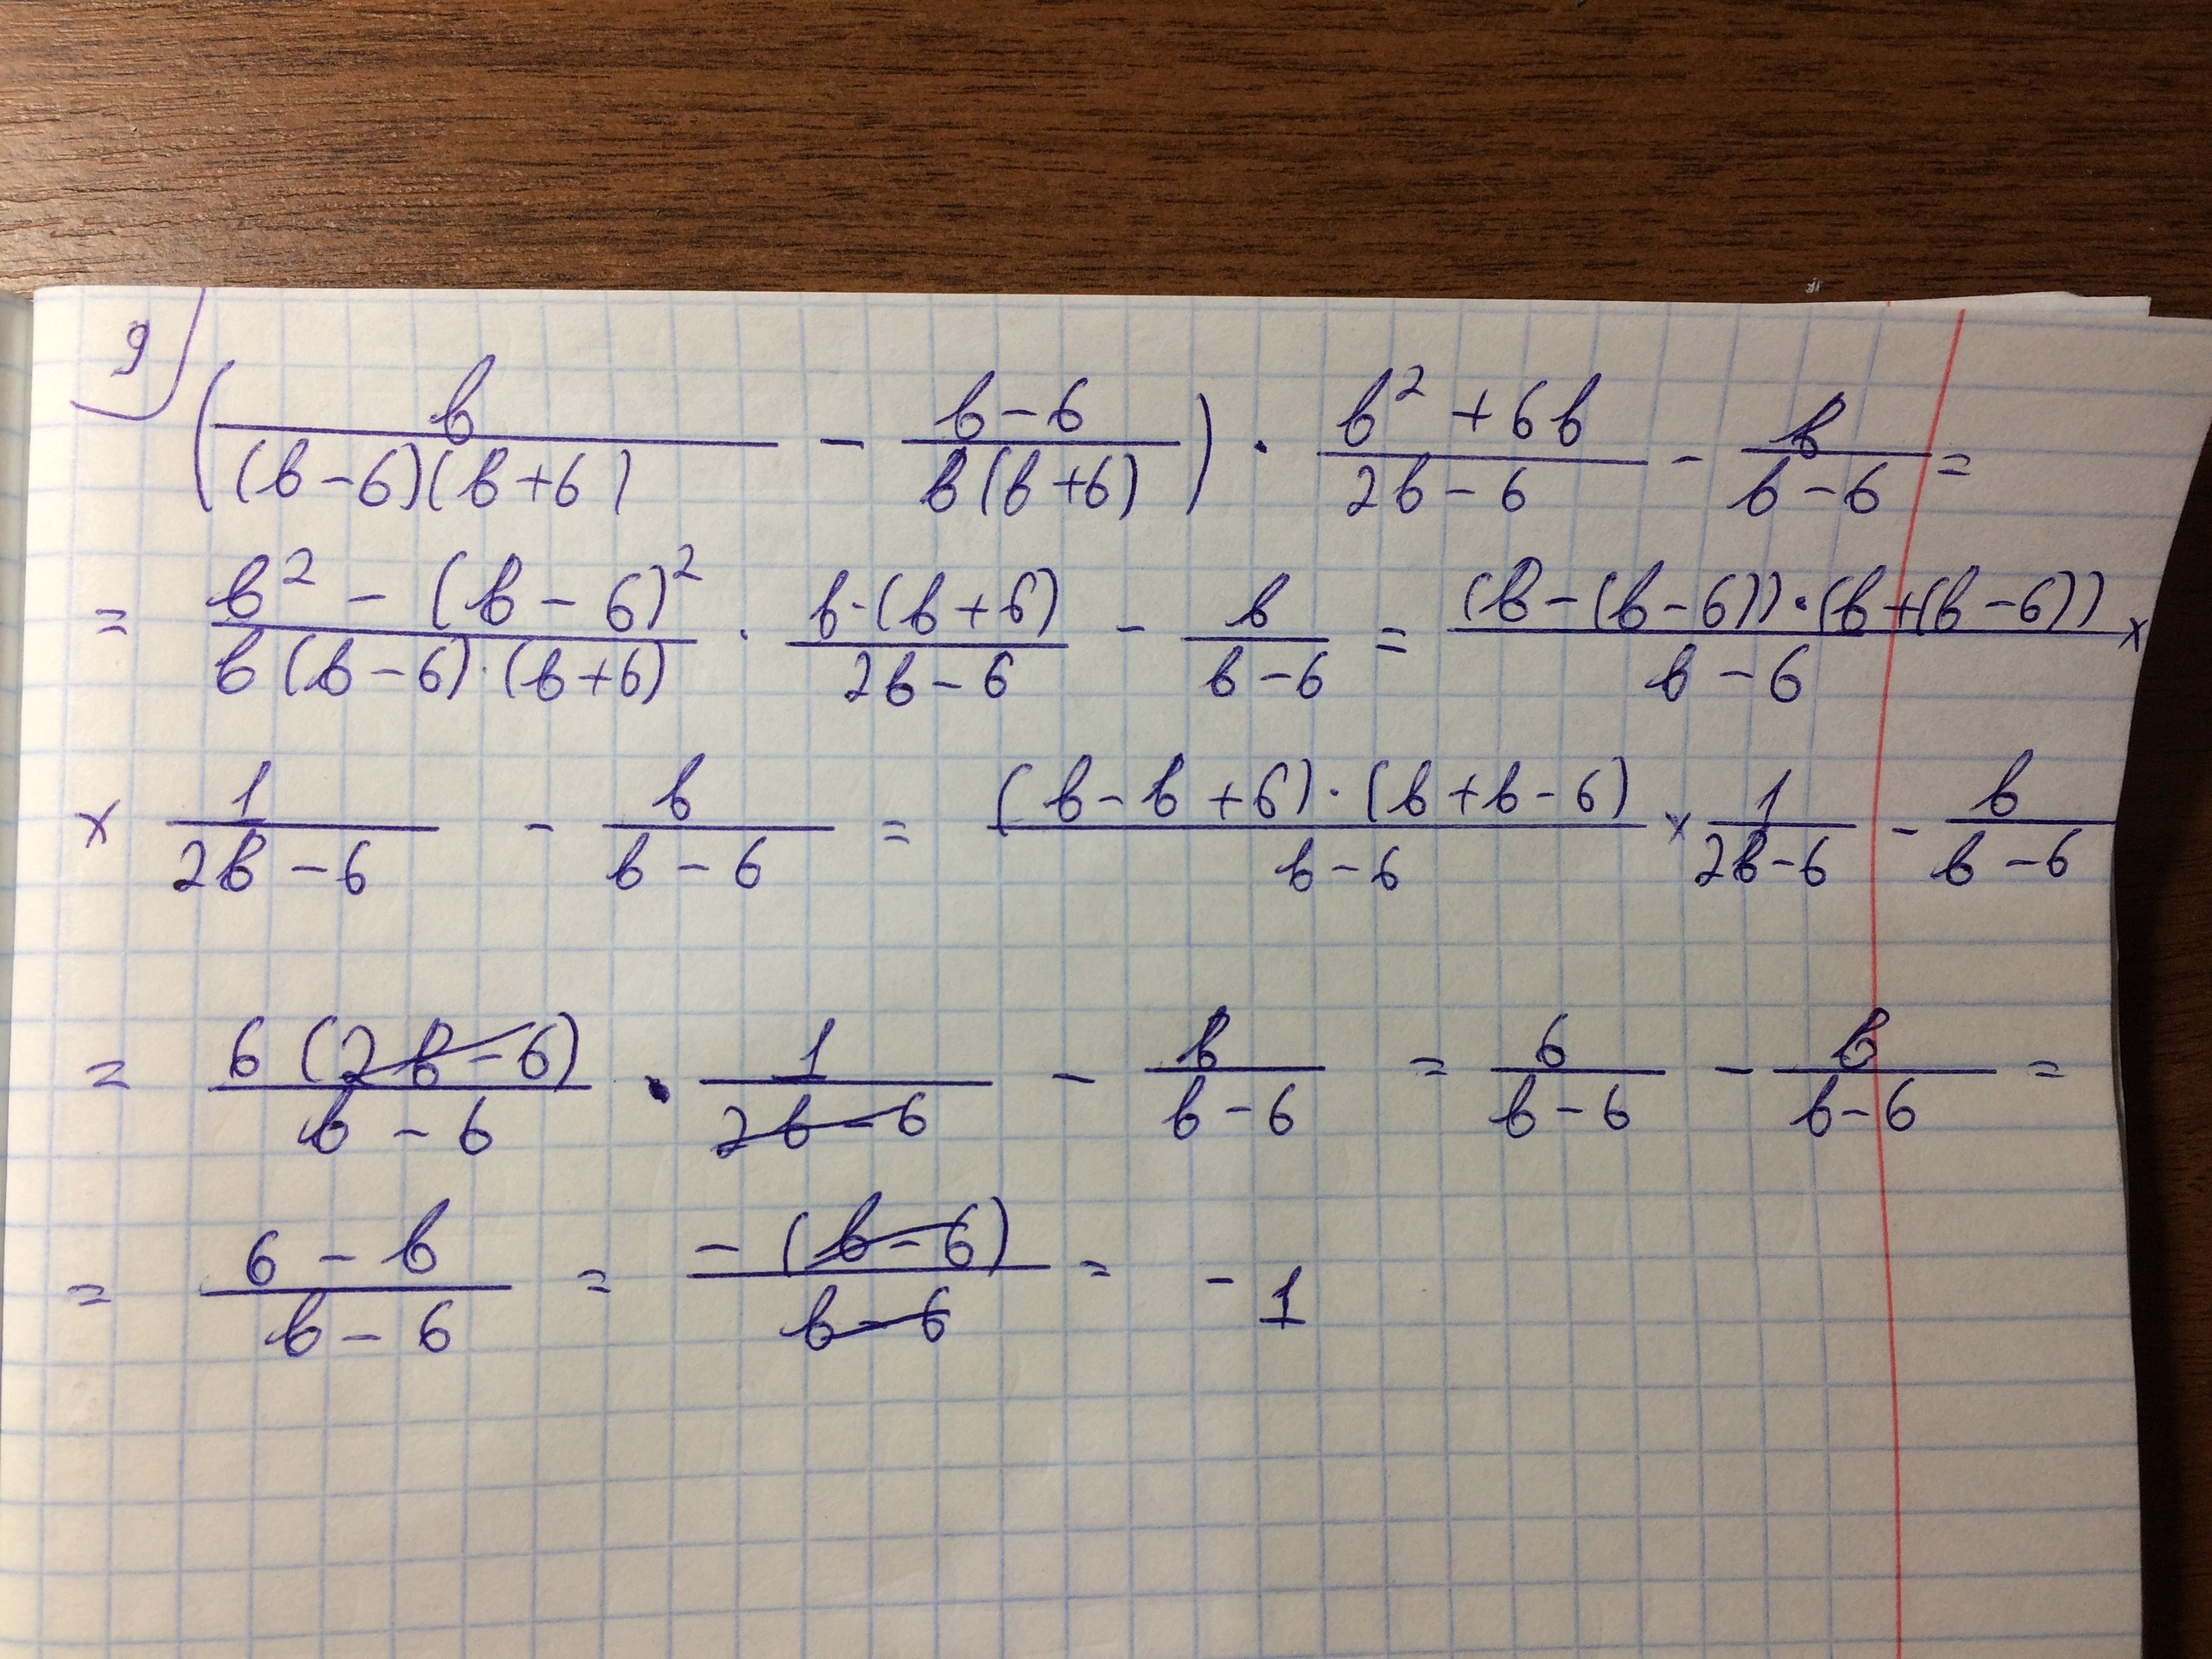 9) (b/((b-6)(b+6)) - (b-6)/(b(b+6))) · (b² + 6b)/(2b-6) - b/(b-6) =
= (b² - (b-6)²)/(b(b-6)·(b+6)) · (b·(b+6))/(2b-6) - b/(b-6) = ((b-(b-6))·(b+(b-6)))/(b-6) ×
× 1/(2b-6) - b/(b-6) = ((b-b+6)·(b+b-6))/(b-6) × 1/(2b-6) - b/(b-6)
= (6(2b-6))/(b-6) · 1/(2b-6) - b/(b-6) = 6/(b-6) - b/(b-6) =
= (6-b)/(b-6) = (-(b-6))/(b-6) = -1